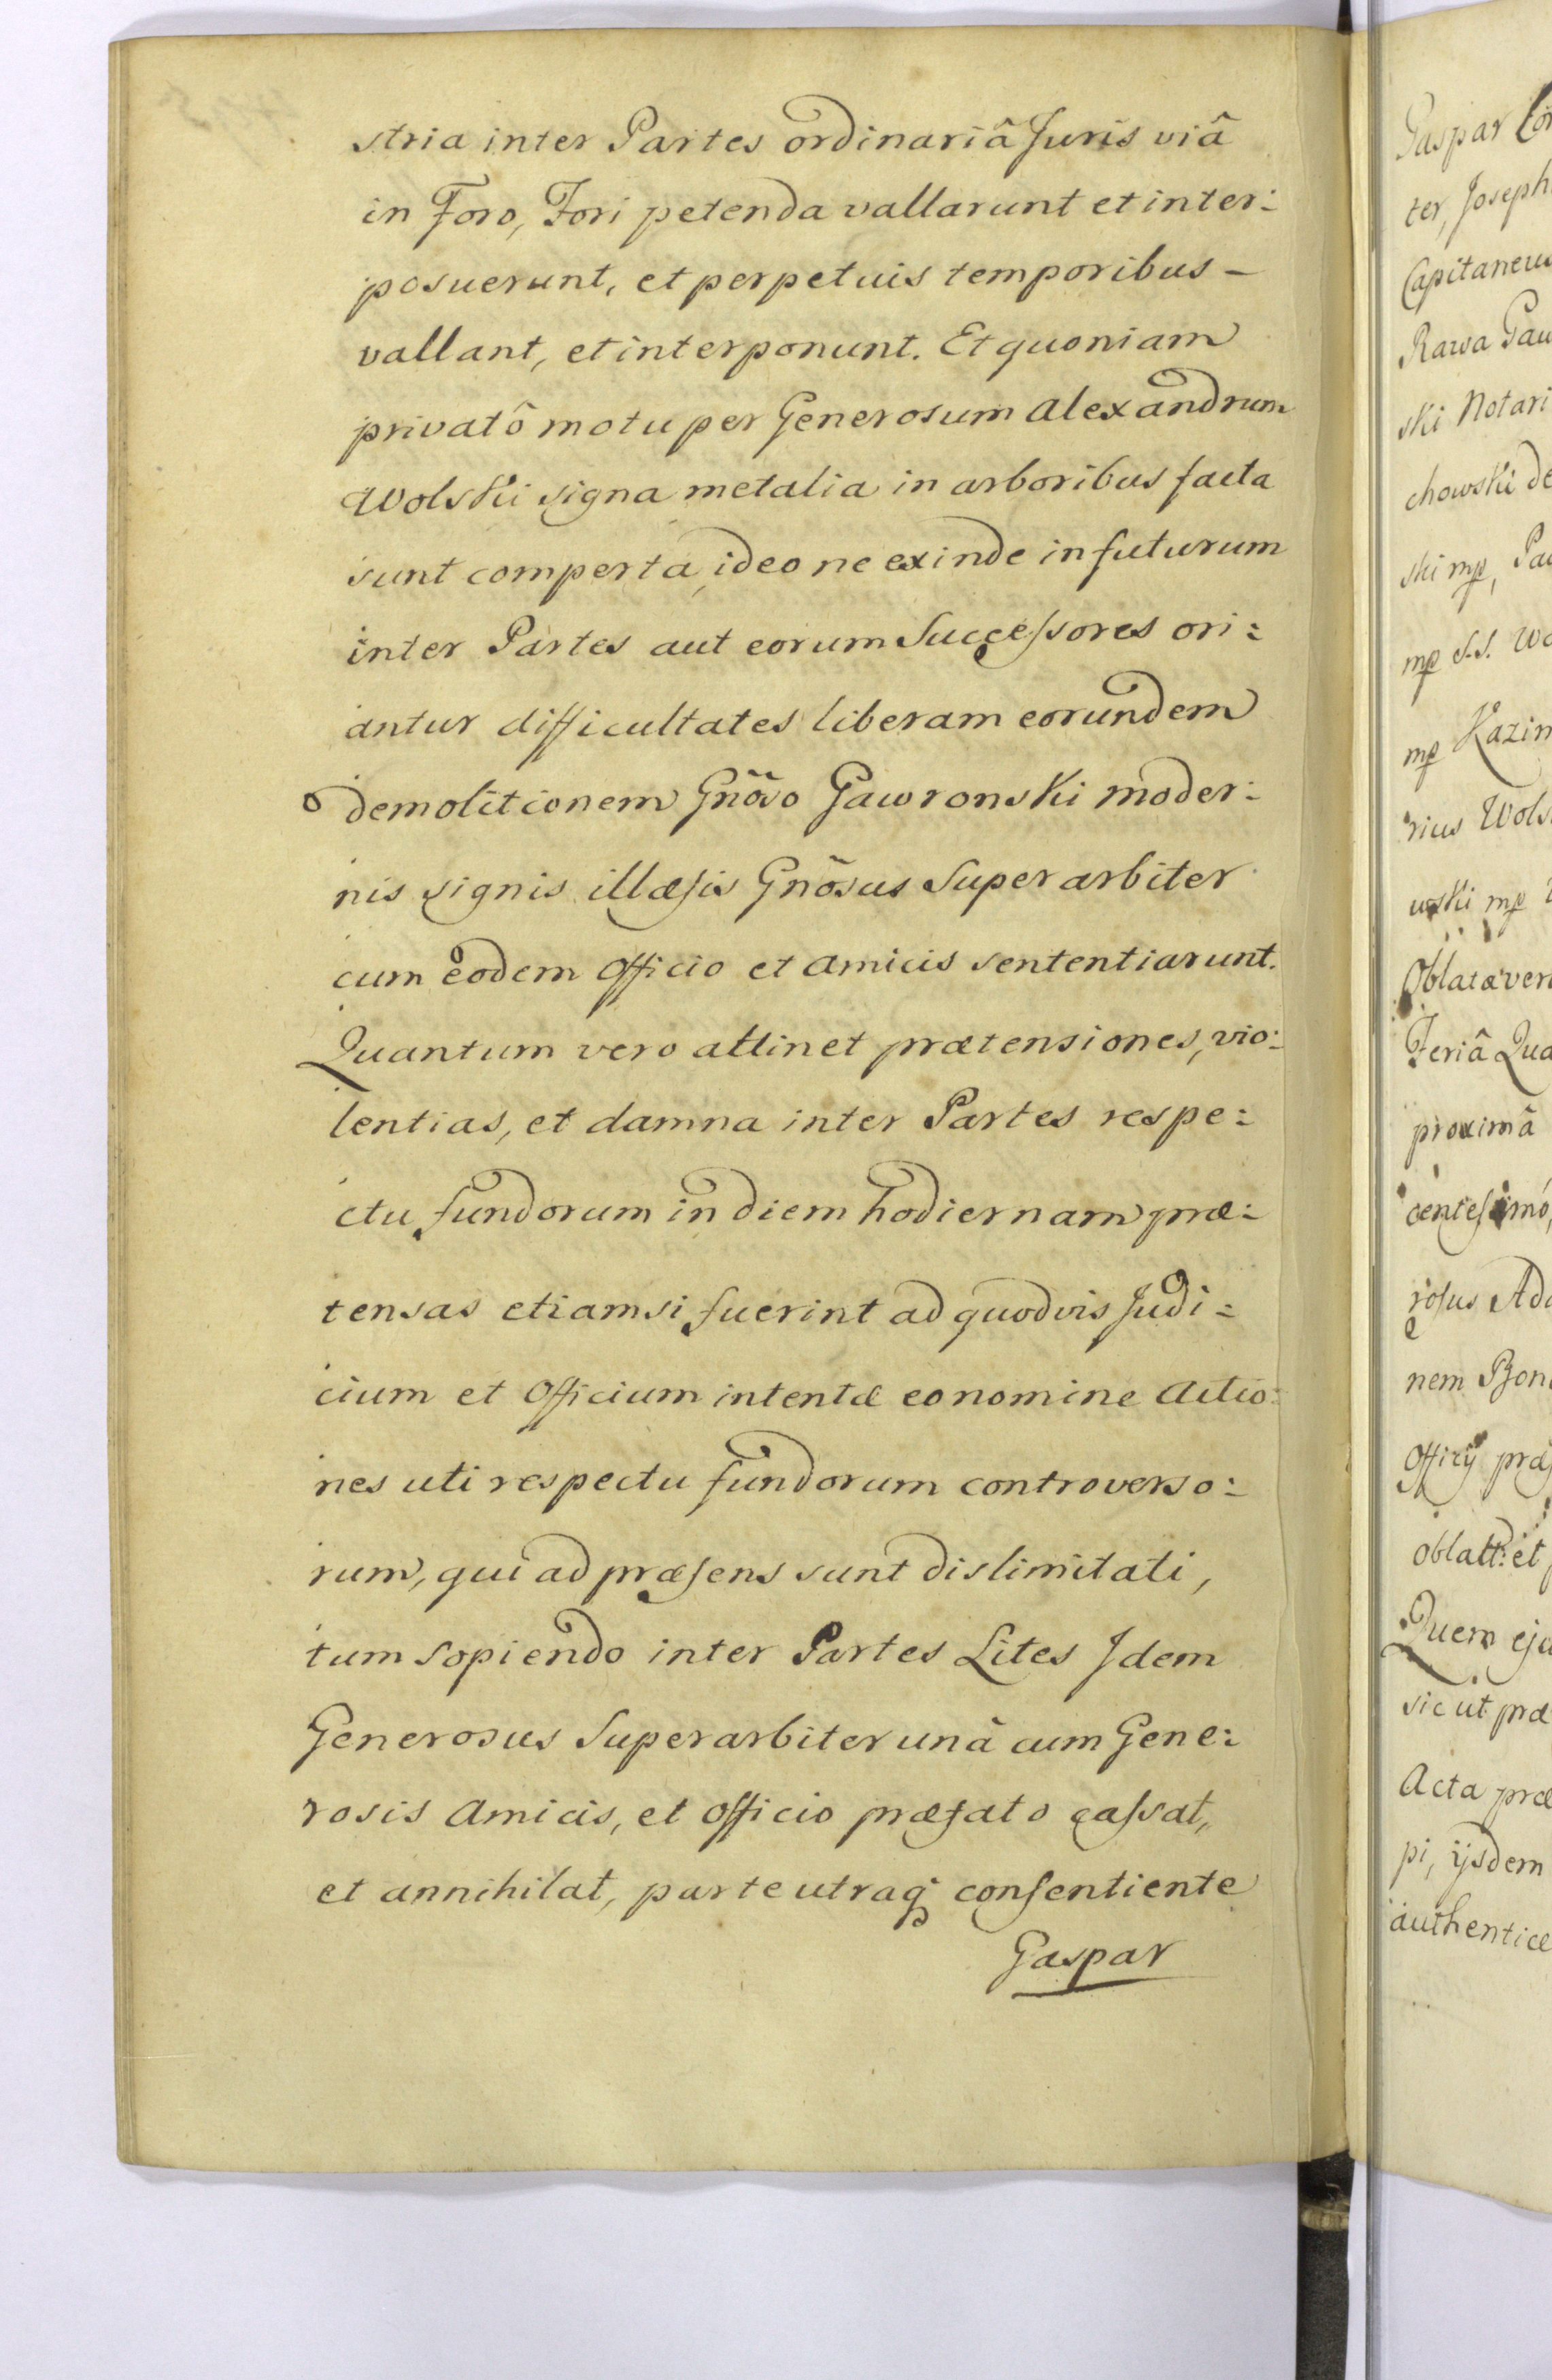 stria inter Partes ordinariâ Juris viâ
in Foro, Fori petenda vallarunt et inter:
posuerunt, et perpetuis temporibus –
vallant, et interponunt. Et quoniam
privatô motu per Generosum Alexandrum
Wolski signa metalia in arboribus facta
sunt comperta, ideo ne exinde in futurum
inter Partes aut eorum Succeſsores ori:
antur difficultates liberam eorundem
demolitionem Gñoso Gawronski moder:
nis signis illæſis Gñosus Superarbiter
cum eodem Officio et Amicis sententiarunt.
Quantum vero attinet prætensiones, vio:
lentias, et damna inter Partes respe:
ctu fundorum in diem hodiernam præ:
tensas etiamsi fuerint ad quodvis Judi:
cium et Officium intentæ eo nomine Actio:
nes uti respectu fundorum controverso:
rum, qui ad præſens sunt dislimitati,
tum sopiendo inter Partes Lites Idem
Generosus Superarbiter unâ cum Gene:
rosis Amicis, et Officio præfato caſsat,
et annihilat, parte utraq conſentiente
Gaspar
Gaspar
ter, Joseph
Capitaneus
Rawa Gaw
ski Notari
chowski de
ski mp,
mp S.S. Wo
mp Kazim
rius Wols
wski mp
Oblatæ vero
Feriâ Qua
proximâ
centeſimo,
roſus Ada
nem
Officÿ præ
oblatt: et
Quem eju
sic ut præ
Acta præ
pi, ijsdem
authentice